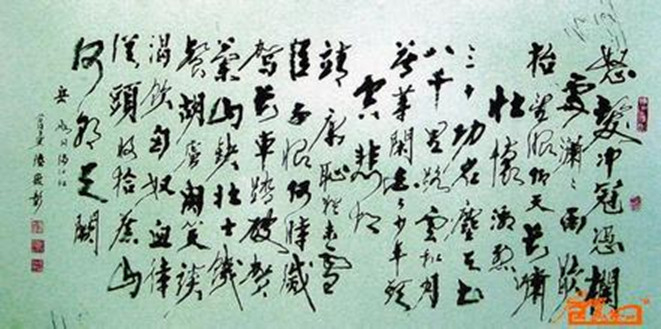 怒髮冲冠憑欄
處瀟々雨歇
抬望眼仰天長嘯
壯懷激烈
三十功名塵與土
八千里路雲和月
莫等閑白了少年頭
空悲切
靖康恥猶未雪
臣子恨何時滅
駕長車踏破賀
蘭山缺壮士飢
餐胡虜肉笑談
渴飲匈奴血待
從頭收拾舊山
河朝天闕
岳飛詞滿江红